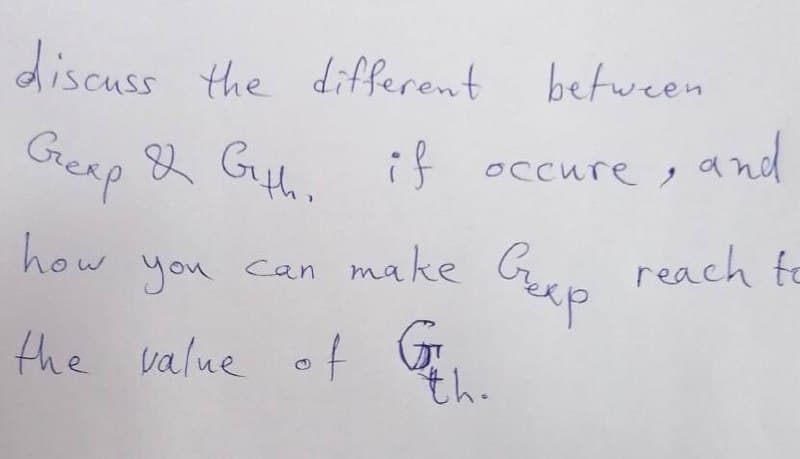 discuss the different between
Gexp & Gth. if occure, and
how you can make Gexp reach to
the value of Gth.